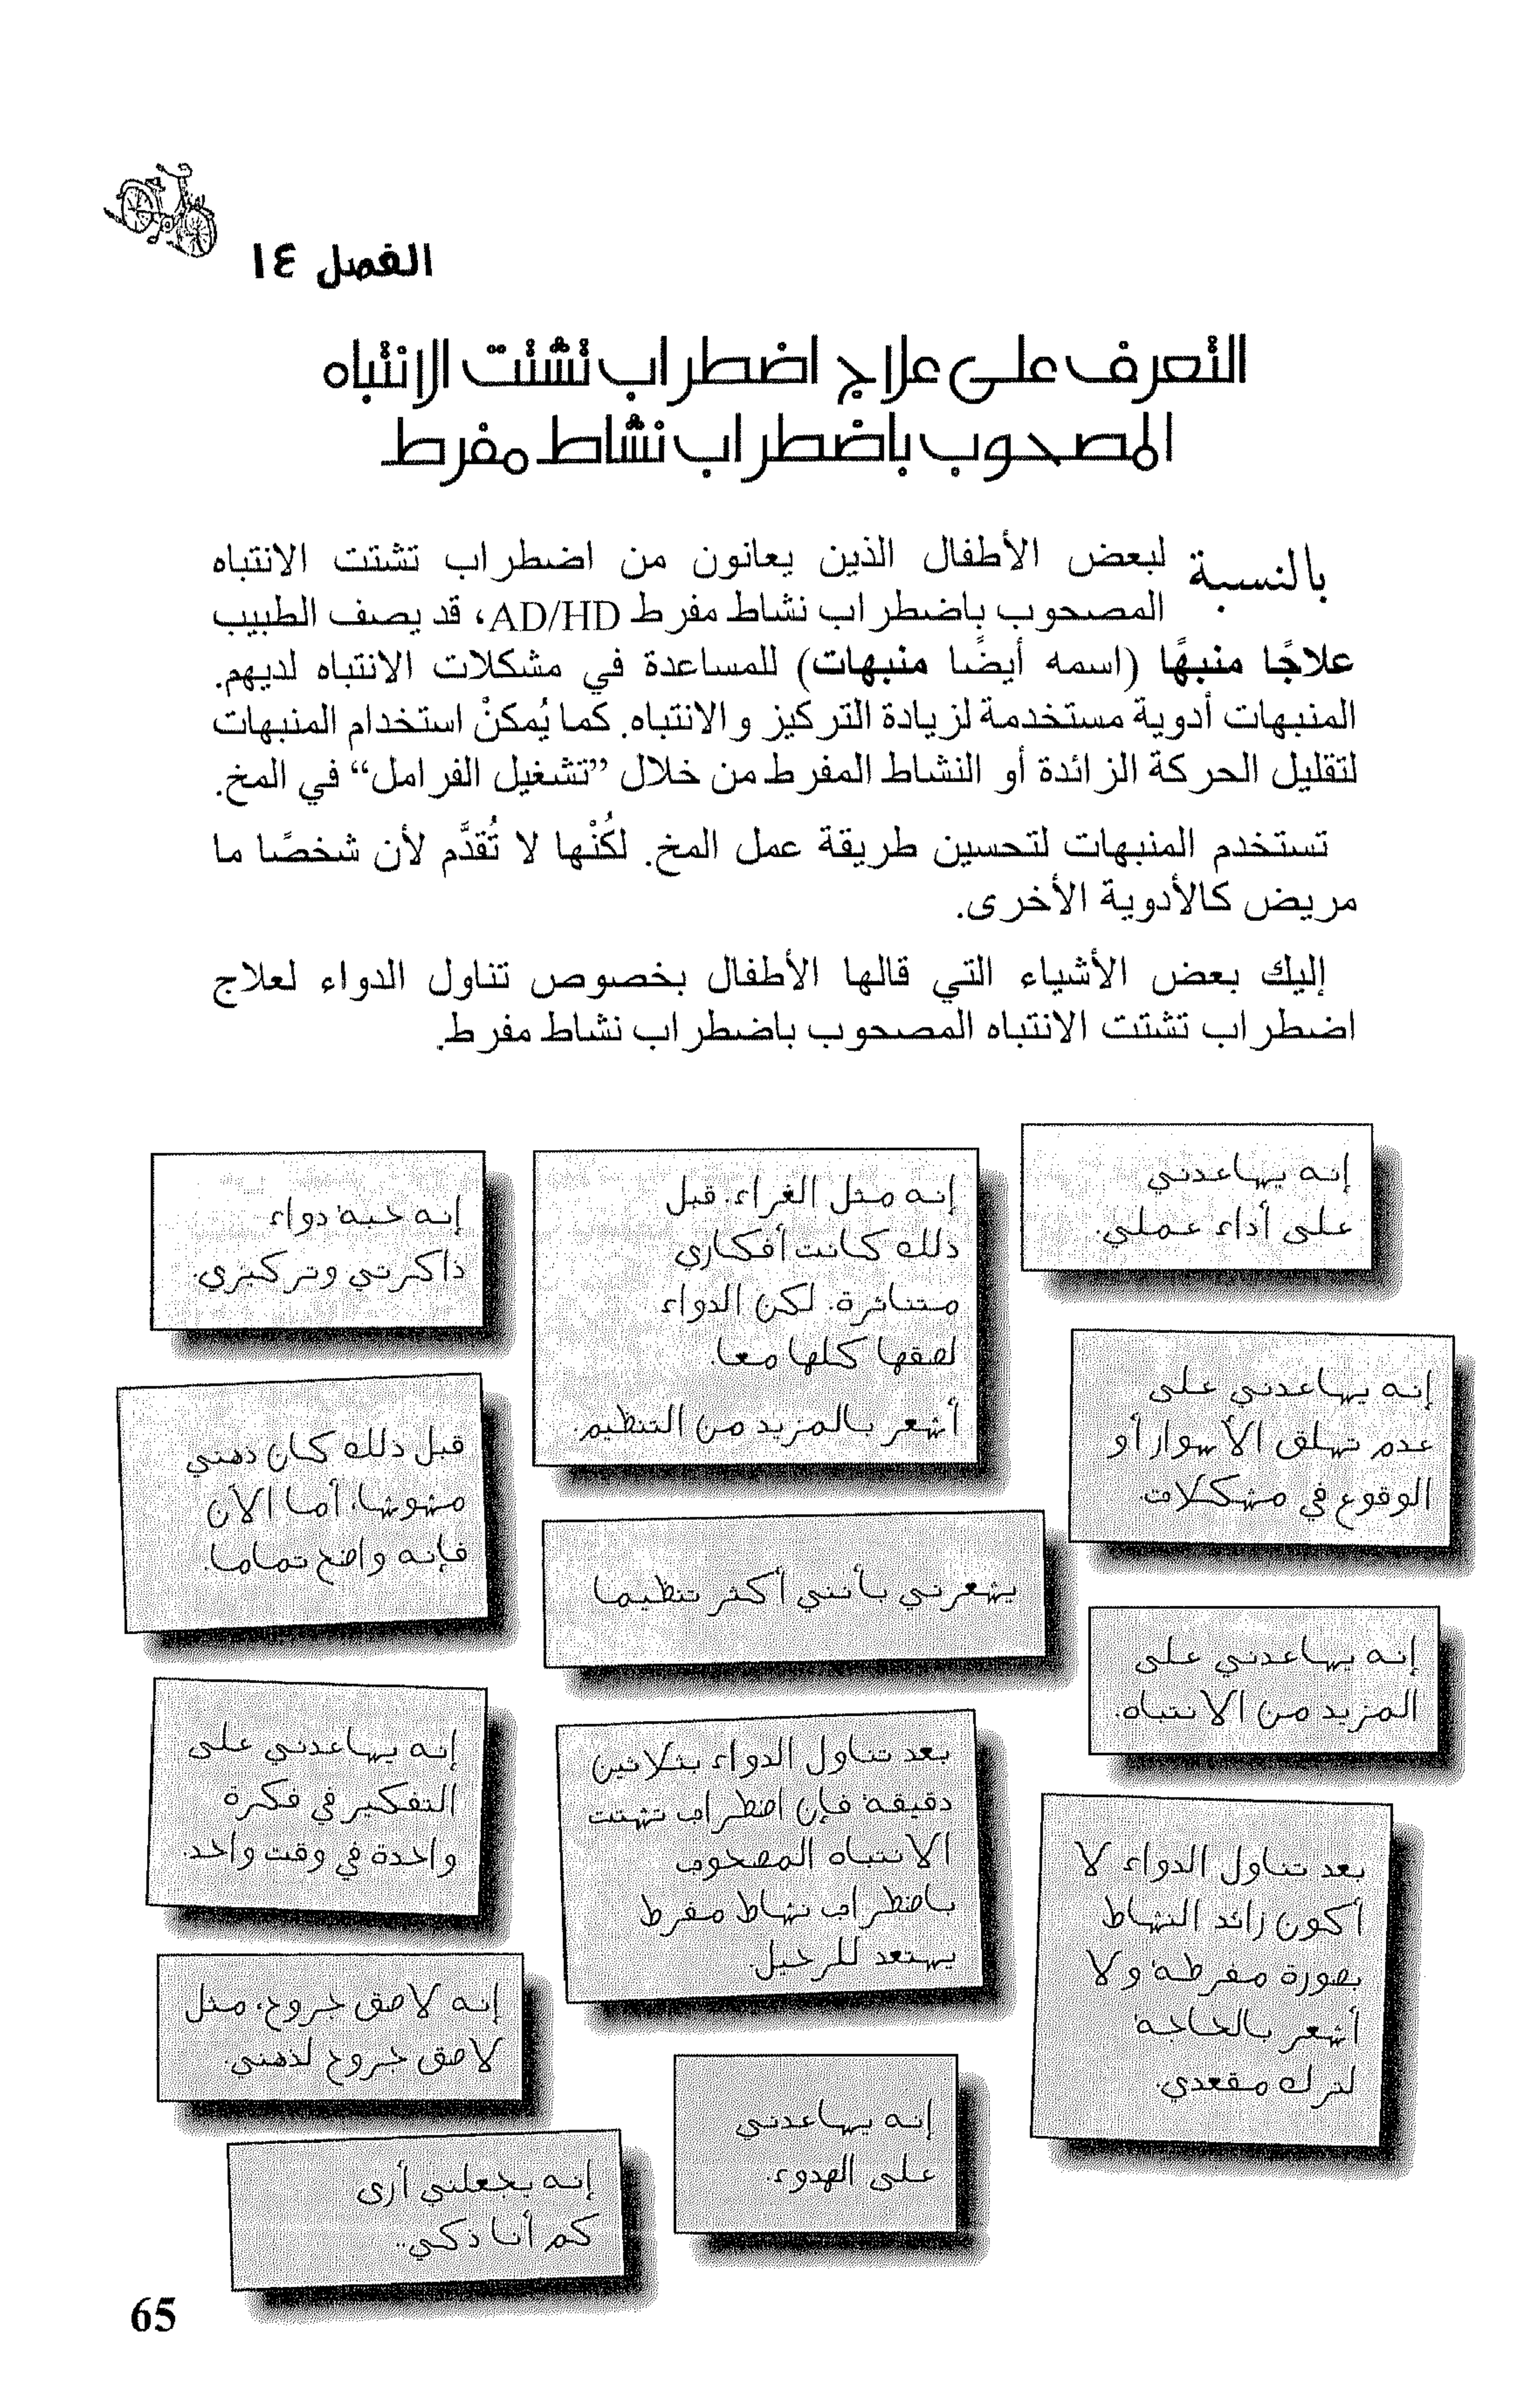 الفصل ١٤
التعرف على علاج اضطراب تشتت الانتباه
المصحوب باضطراب نشاط مفرط
بالنسبة لبعض الأطفال الذين يعانون من اضطراب تشتت الانتباه
المصحوب باضطراب نشاط مفرط AD/HD، قد يصف الطبيب
علاجًا منبهًا (اسمه أيضًا منبهات) للمساعدة في مشكلات الانتباه لديهم.
المنبهات أدوية مستخدمة لزيادة التركيز والانتباه. كما يُمكنْ استخدام المنبهات
لتقليل الحركة الزائدة أو النشاط المفرط من خلال ”تشغيل الفرامل“ في المخ.
تستخدم المنبهات لتحسين طريقة عمل المخ. لكُنْها لا تُقدَّم لأن شخصًا ما
مريض كالأدوية الأخرى.
إليك بعض الأشياء التي قالها الأطفال بخصوص تناول الدواء لعلاج
اضطراب تشتت الانتباه المصحوب باضطراب نشاط مفرط.
إنه يساعدني
على أداء عملي.
إنه مثل الغراء. قبل
ذلك كانت أفكاري
متناثرة. لكن الدواء
لصقها كلها معا.
أشعر بالمزيد من التنظيم.
إنه حبة دواء
ذاكرتي وتركيزي.
إنه يساعدني على
عدم تسلق الأسوار أو
الوقوع في مشكلات.
قبل ذلك كان ذهني
مشوشا، أما الآن
فإنه واضح تماما.
يشعرني بأنني أكثر تنظيما
إنه يساعدني على
المزيد من الانتباه.
إنه يساعدني على
التفكير في فكرة
واحدة في وقت واحد.
بعد تناول الدواء بثلاثين
دقيقة فإن اضطراب تشتت
الانتباه المصحوب
باضطراب نشاط مفرط
يستعد للرحيل.
بعد تناول الدواء لا
أكون زائد النشاط
بصورة مفرطة ولا
أشعر بالحاجة
لترك مقعدي.
إنه لاصق جروح، مثل
لاصق جروح لذهني.
إنه يساعدني
على الهدوء.
إنه يجعلني أرى
كم أنا ذكي..
65